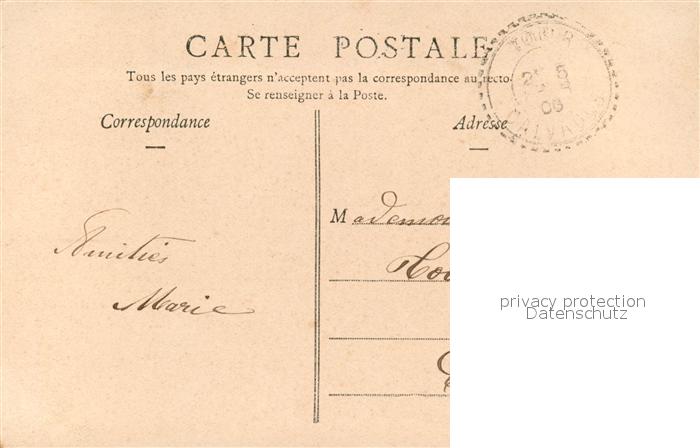 CARTE POSTALE
Tous les pays étrangers n'acceptent pas la correspondance au recto.
Se renseigner à la Poste.
Correspondance
Adresse
Amitiés
Marie
Mademoi
privacy protection
Datenschutz